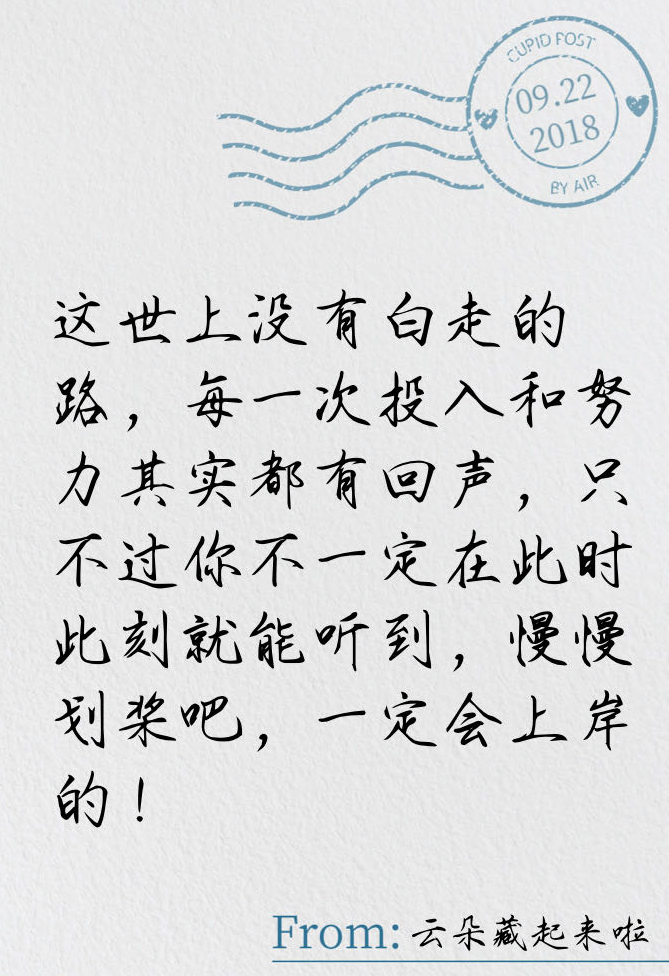 CUPID POST
09.22
2018
BY AIR
这世上没有白走的
路，每一次投入和努
力其实都有回声，只
不过你不一定在此时
此刻就能听到，慢慢
划桨吧，一定会上岸
的！
From: 云朵藏起来啦